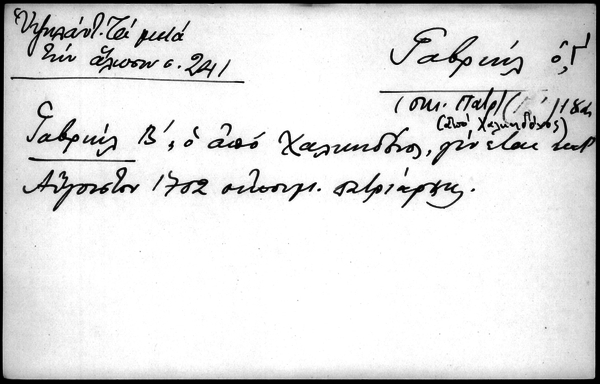 Ὑψηλάντ. Τά μετά
τήν ἅλωσιν σ. 241
Γαβριήλ ὁ, Γ΄
(οικ. Πατρ)
(ἀπό Χαλκηδόνος)
Γαβριήλ Β΄, ὁ ἀπό Χαλκηδόνος, γίνεται κατ
Αὔγουστον 1702 οἰκουμ. πατριάρχης.